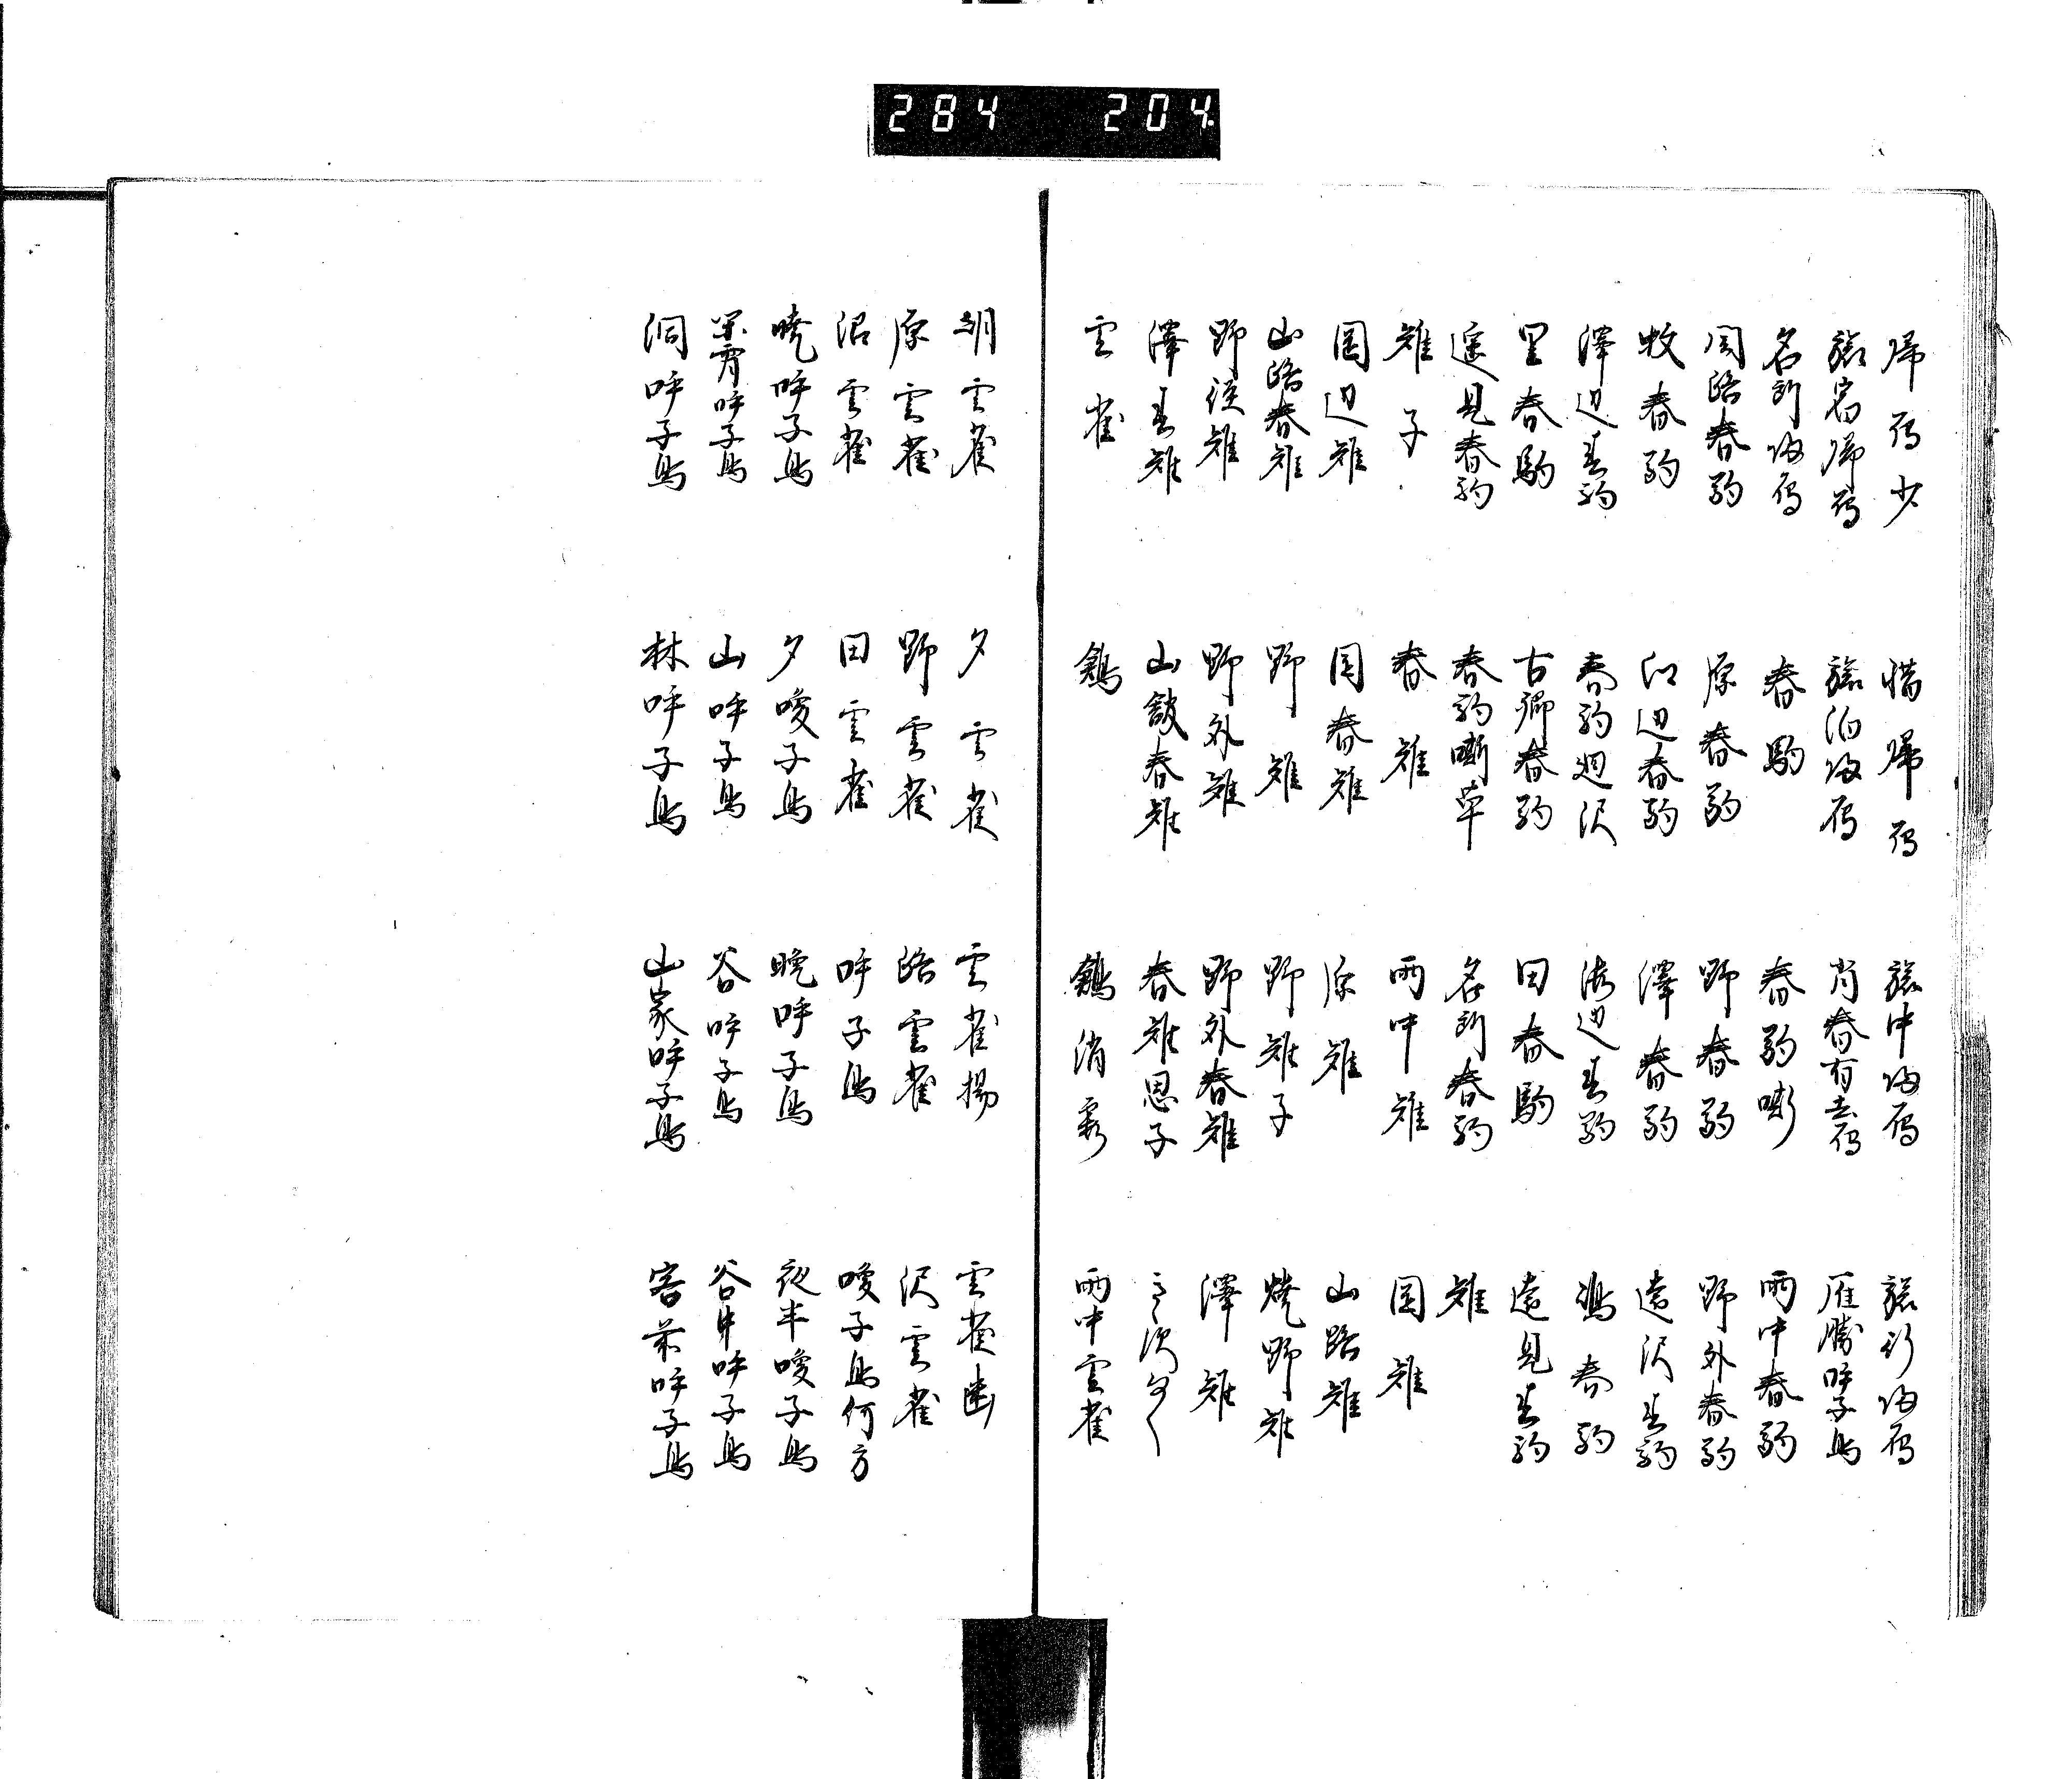 284 204
帰雁少 惜帰雁 旅中帰雁 旅行帰雁
旅宿帰雁 旅泊帰雁 背春有去雁 雁勝呼子鳥
名所帰雁 春駒 春駒嘶 雨中春駒
関路春駒 原春駒 野春駒 野外春駒
牧春駒 江辺春駒 澤春駒 遠沢春駒
澤辺春駒 春駒廻沢 海辺春駒 春駒
里春駒 古郷春駒 田春駒 遠見春駒
遥見春駒 春駒嘶草 名所春駒 雉
雉子 春雉 雨中雉 岡雉
岡辺雉 岡春雉 原雉 山路雉
山路春雉 野雉 野雉子 焼野雉
野径雉 野外雉 野外春雉 澤雉
澤春雉 山館春雉 春雉思子
雲雀 鶏 鶏消霞 雨中雲雀
朝雲雀 夕雲雀 雲雀揚 雲雀幽
原雲雀 野雲雀 路雲雀 沢雲雀
沼雲雀 田雲雀 呼子鳥 喚子鳥何方
暁呼子鳥 夕喚子鳥 晩呼子鳥 夜半喚子鳥
深霄呼子鳥 山呼子鳥 谷呼子鳥 谷中呼子鳥
洞呼子鳥 林呼子鳥 山家呼子鳥 客前呼子鳥